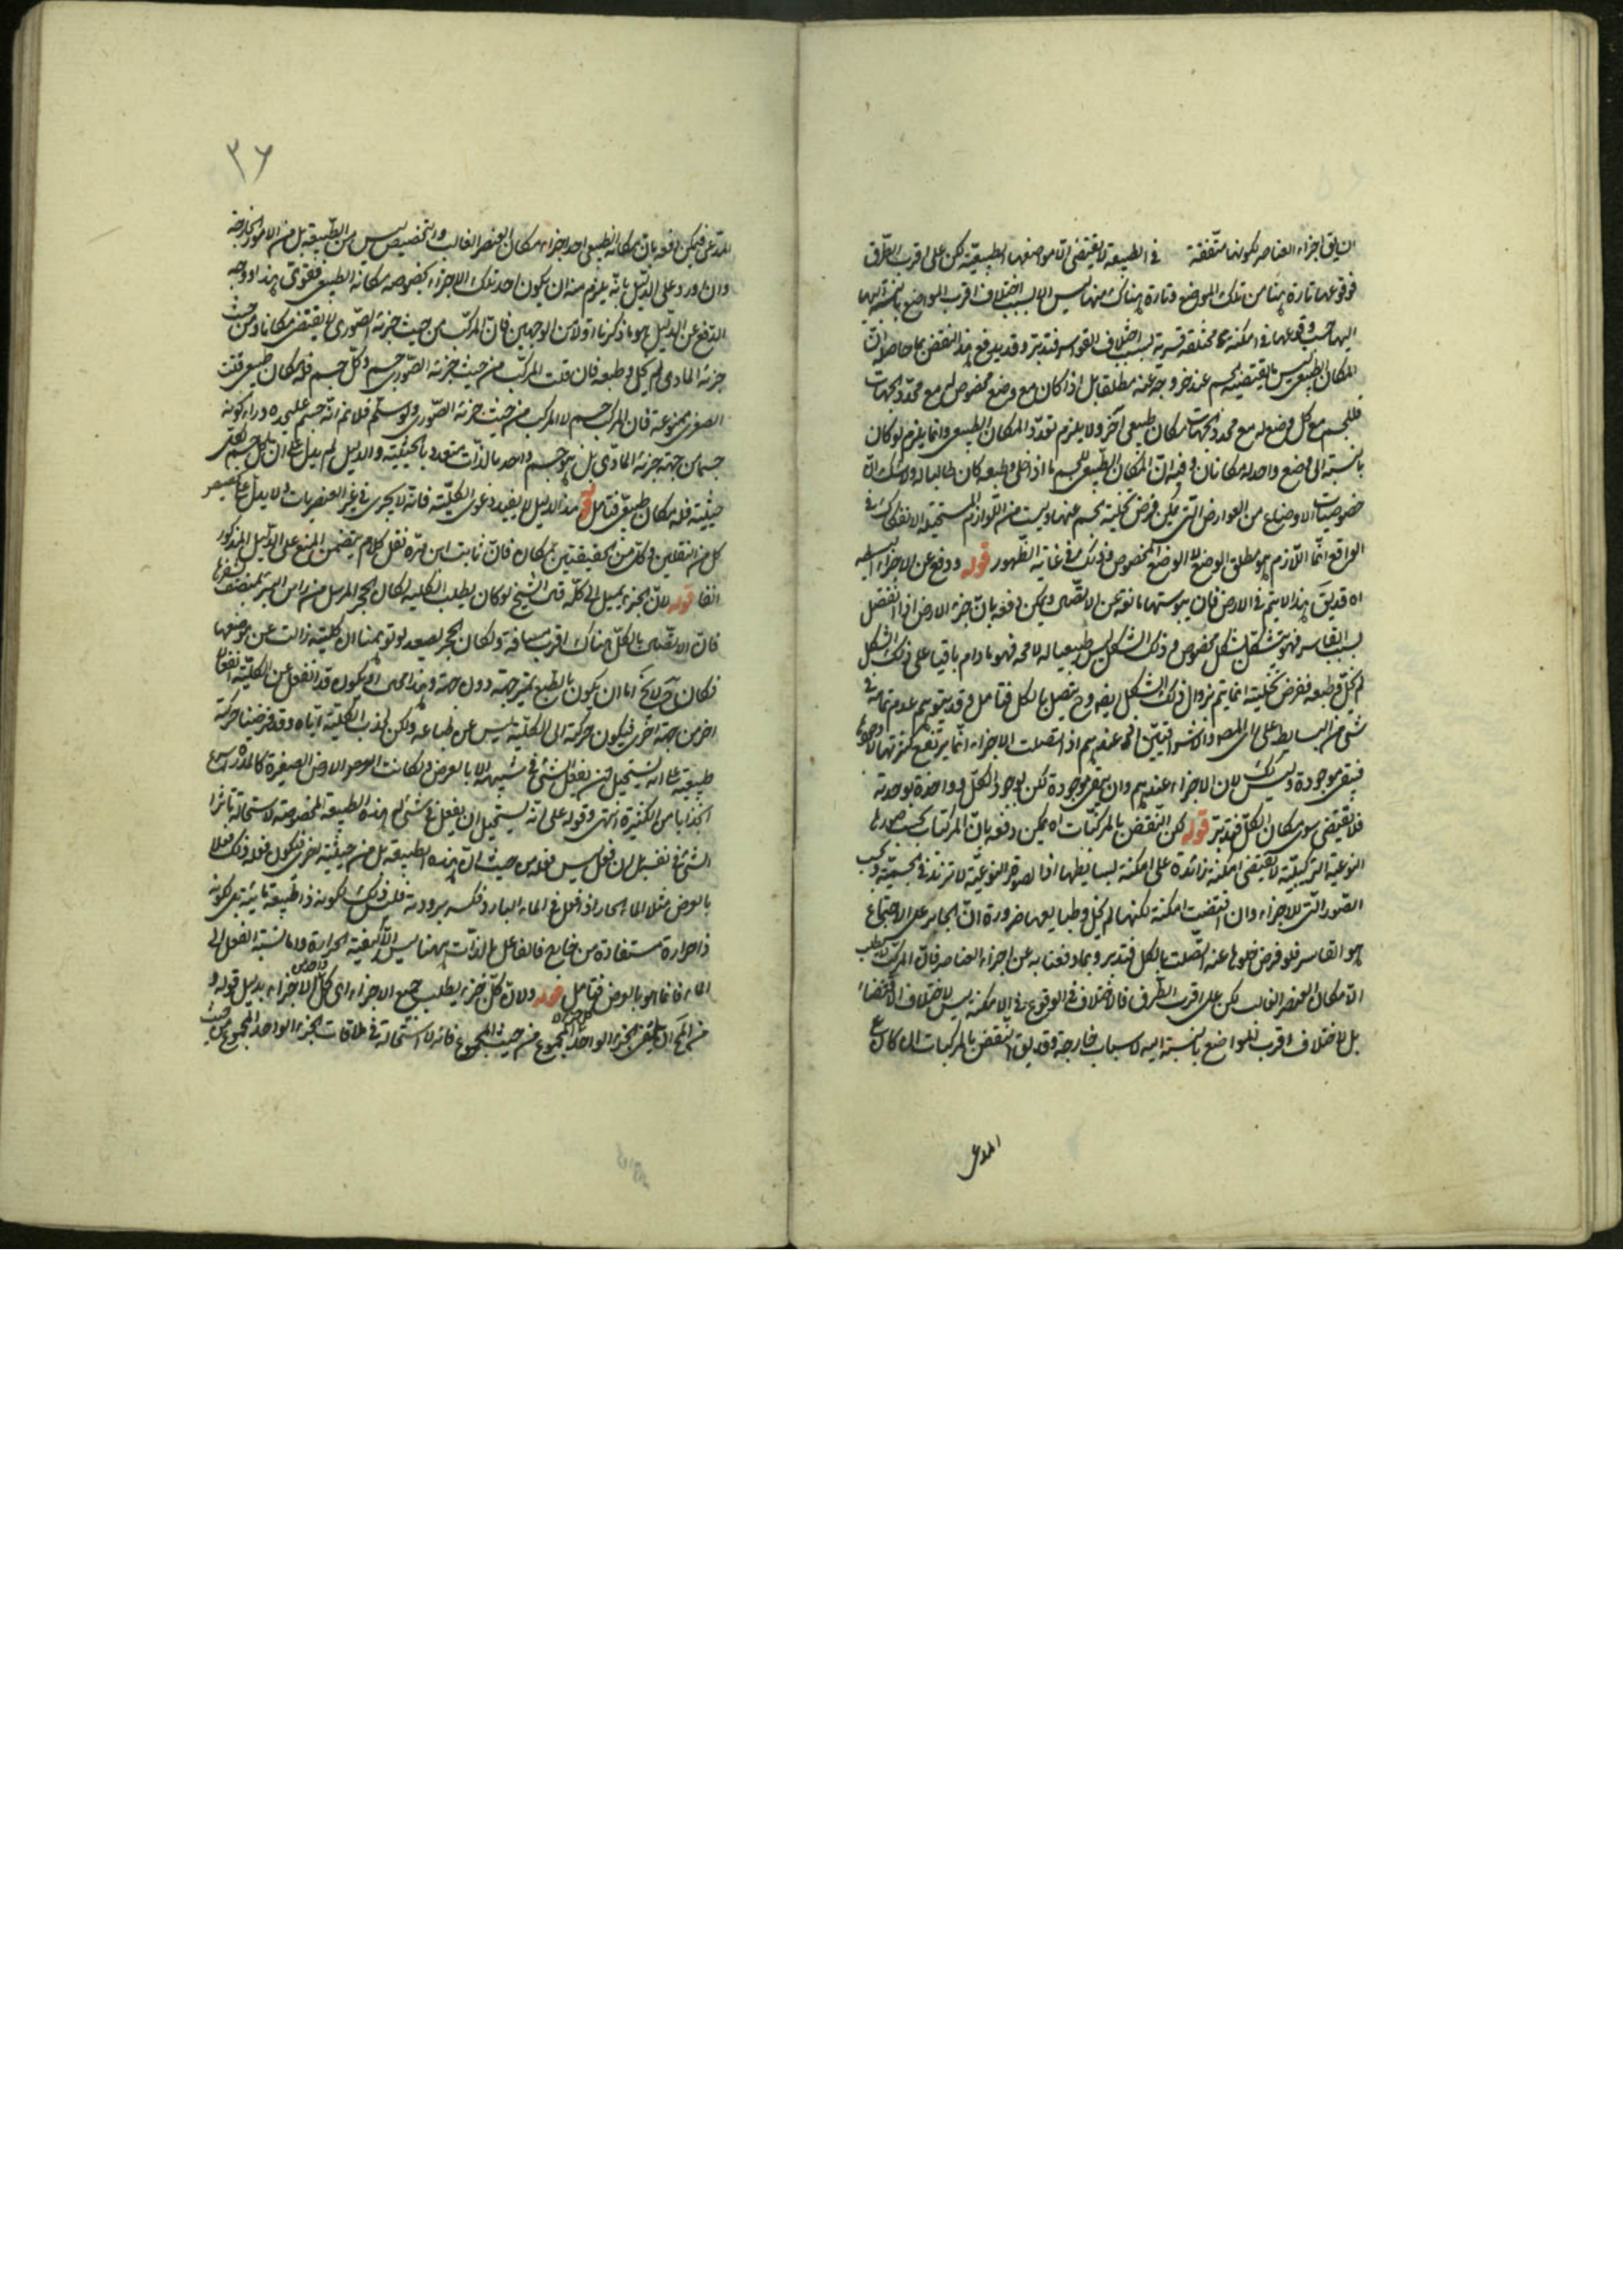 ان يق اجزاء العناصر لكونها متفقة في الطبيعة لا يقتضى الا مواضعها الطبيعية لكن على اقرب الطرق
فوقوعها تارة هنا من تلك المواضع وتارة هناك منها ليس الا بسبب اختلاف اقرب المواضع بالنسبة اليها
اليها حسب وقوعها في امكنة مختلفة قسرية بسبب اختلاف القواسر فتدبر وقد يدفع هذا النقض بما حاصله ان
المكان الطبيعى ليس ما يقتضيه الجسم عند خروجه عنه مطلقا بل اذا كان مع وضع مخصوص له مع محدد الجهات
فللجسم مع كل وضع له مع محدد الجهات مكان طبيعى آخر ولا يلزم تعدد المكان الطبيعى وانما يلزم لو كان
بالنسبة الى وضع واحد له مكانان وفيه ان المكان الطبيعى للجسم ما اذا خلى وطبعه كان طالبا له ولا شك ان
خصوصيات الاوضاع من العوارض التى يمكن فرض تخلية الجسم عنها وليست من اللوازم المستحيلة الانفكاك في
الواقع انما اللازم هو مطلق الوضع لا الوضع المخصوص وذلك في غاية الظهور قوله ودفع عن الاجزاء البسيطه
اه قد يق هذا لا يتم في الارض فان يبوستها مانعة عن الاتصال ويمكن دفعه بان جزء الارض اذا انفصل
بسبب القاسر فهو يتشكل بشكل مخصوص وذلك الشكل ليس طبيعيا له لا محة فهو ما دام باقيا على ذلك الشكل
لم يخل وطبعه ففرض تخليته انما يتم بزوال ذلك الشكل ايضا وح يتصل بالكل فتامل وقد يتوهم عدم تمامه في
شئ من البسايط على راى المص اذ الاشراقيين عندهم اذا اتصلت الاجزاء انما يرتفع كثرتها لا وجودها
فيبقى موجودة وليس كك لان الاجزاء عندهم وان بقى موجودة لكن بوجود الكل وواحدة بوحدته
فلا يقتضى سوى مكان الكل فتدبر قوله لكن النقض بالمركبات اه يمكن دفعه بان المركبات بحسب صورها
النوعية التركيبية لا يقتضى امكنة زائدة على امكنة بسايطها اذ الصورة النوعية لا تزيد في الجسمية وبحسب
الصور التى للاجزاء وان اقتضيت امكنة لكنها لم يخل وطبايعها ضرورة ان الجابر على الاجتماع
هو القاسر فلو فرض خلوها عنه اتصلت بالكل فتدبر وبما دفعنا به عن اجزاء العناصر فان المركب لا يطلب
الا مكان العنصر الغالب لكن على اقرب الطرف فالاختلاف في الوقوع في الامكنة ليس لاختلاف الاقتضاء
بل لاختلاف اقرب المواضع بالنسبة اليه لاسباب خارجة وقد يق النقض بالمركبات ان كان على
المدعى
٣٦
المدعى فيمكن دفعه بان مكانه الطبيعى احد اجزاء مكان العنصر الغالب والتخصيص ليس من الطبيعة بل من الامور الخارجة
وان اورد على الدليل بانه يلزم منه ان يكون احد تلك الاجزاء بخصوصه مكانه الطبيعى فقوى هذا ووجه
الدفع عن الدليل هو ما ذكرنا اولا من الوجهين فان المركب من حيث جزئه الصورى لا يقتضى مكانا ومن حيث
جزئه المادى لم يخل وطبعه فان قلت المركب من حيث جزئه الصورى جسم وكل جسم فله مكان طبيعى قلت
الصغرى ممنوعة فان المركب جسم لا المركب من حيث جزئه الصورى ولو سلم فلا نم انه جسم عليحده وراء كونه
جسما من جهة جزئه المادى بل هو جسم واحد بالذات متعدد بالحيثية والدليل لم يدل على ان كل جسم بكل
حيثيته فله مكان طبيعى فتامل قوله هذا الدليل لا يفيد دعوى الكلية فانه لا يجرى في غير العنصريات ولا يدل على مصير
كل من الثقلين وكل من الخفيفتين بمكانه فان ثابت ابن قرة نقل كلام يتضمن المنع على الدليل المذكور
انفا قوله لان الجزء يميل الى كله قال الشيخ لو كان يطلب الكلية لكان الحجر المرسل من راس البئر يلتصق بشفيرها
فان الاتصال بالكل هناك اقرب مسافة ولكان الحجر يصعد لو توهمنا ان كلية زالت عن موضعها
فكان ح لا يخ اما ان يكون بالطبع يتميز جهة دون جهة وهذا محال او يكون قد انفعل عن الكلية انفعالا
اخر من جهة اخرى فيكون حركته الى الكلية ليس عن طباعه ولكن لجذب الكلية اياه وقد فرضنا حركة
طبيعية على انه يستحيل ان يفعل الشئ في شبيهه الا بالعرض ولكانت الارض الصغيرة كالمدرة اسرع
انجذابا من الكثيرة انتهى وقوله على انه يستحيل ان يفعل في شئ له هذه الطبيعة المخصوصة لاستحالة تاثير
الشئ في نفسه بل ان فعل ليس فعله من حيث ان هذه الطبيعة بل من حيثية اخرى فيكون فعله ذلك فعلا
بالعرض مثلا الماء الحار اذا فعل في الماء البارد فكسر برودته فليس ذلك لكونه ذا طبيعة مائية بل كونه
ذا حرارة مستفادة من خارج فالفاعل بالذات ههنا ليس الا كيفية الحرارة واما نسبة الفعل الى
الماء فانما هو بالعرض فتامل قوله ولان كل جزء يطلب جميع الاجزاء اى كل واحد من الاجزاء بدليل قوله و
من المحال ان يلقى الجزء الواحد كل من المجموع من حيث المجموع فانه لا استحالة في ملاقات الجزء الواحد المجموع من حيث